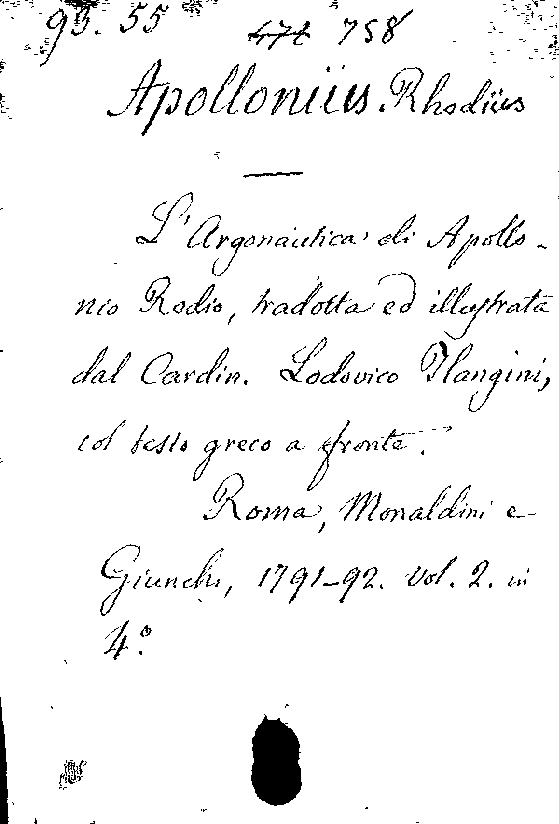 93. 55
474 758
Apollonius Rhodius
L'Argonautica di Apollo-
nio Rodio, tradotta ed illustrata
dal Cardin. Lodovico Flangini,
col testo greco a fronte.
Roma, Monaldini e
Giunchi, 1791-92. vol. 2. in
4.º